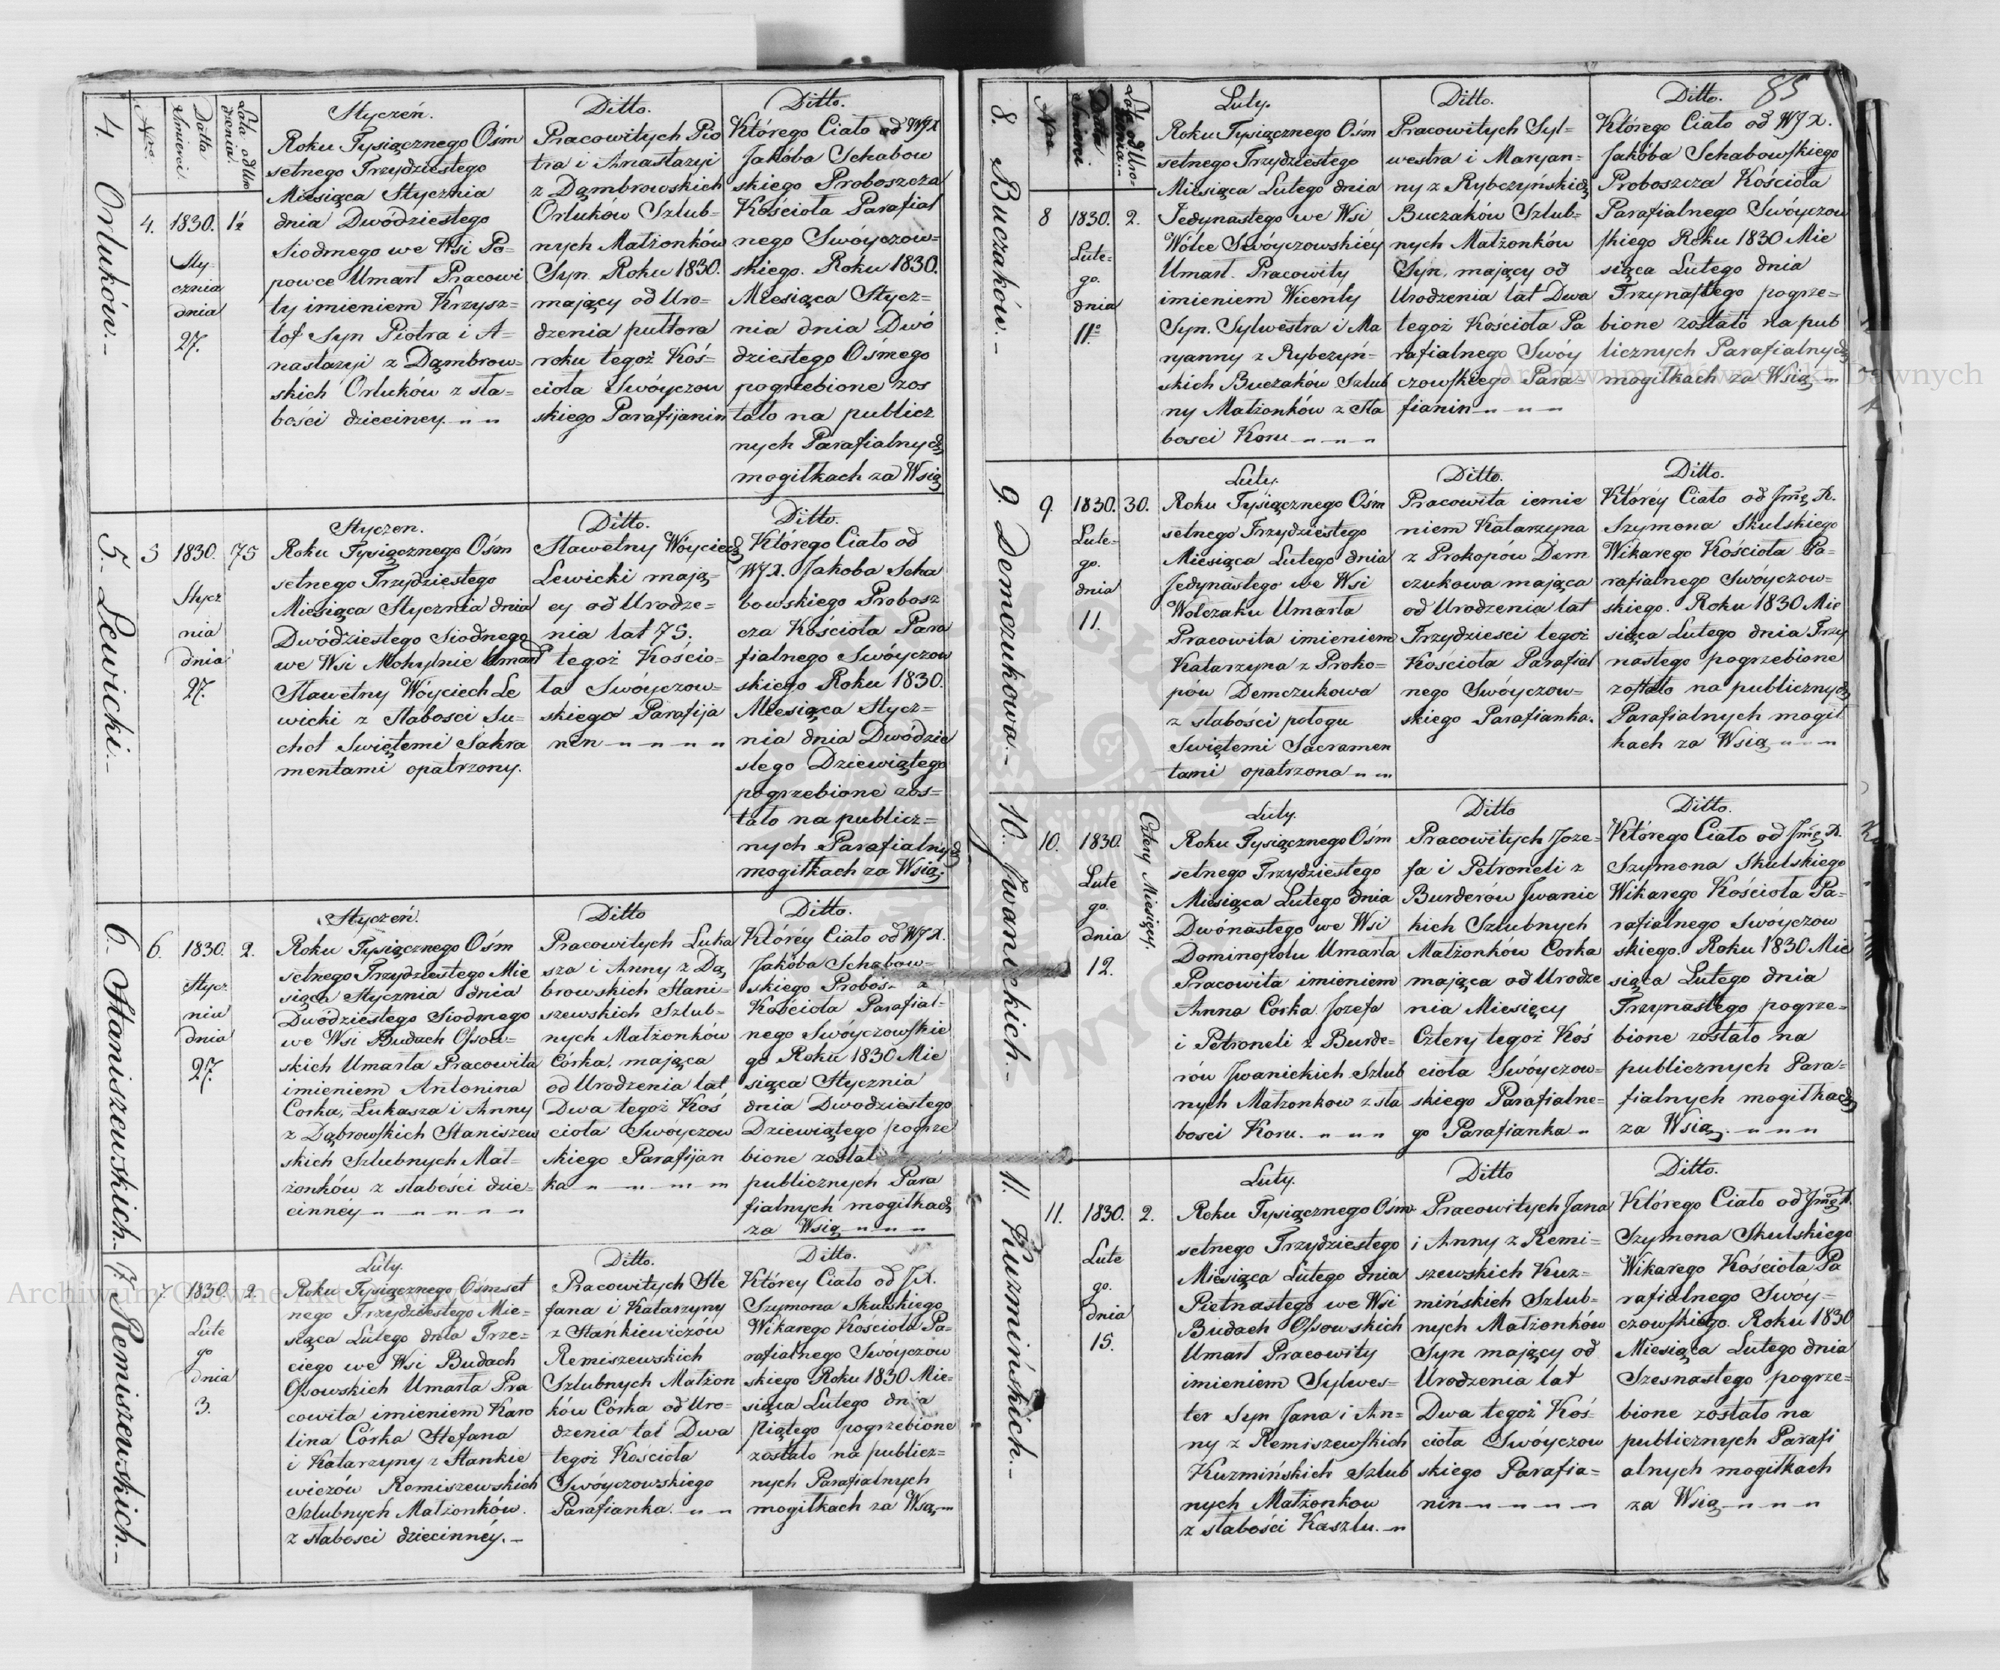 4. Orluków.
Nro.
Datta Smierci
Lata od Uro dzenia.
4.
1830.
Sty-
cznia
dnia
27.
1½
Styczeń.
Roku Tysiącznego Ośm
setnego Trzydziestego
Miesiąca Stycznia
dnia Dwódziestego
Siodmego we Wsi Po-
powce Umarł Pracowi
ty imieniem Krzysz-
tof Syn Piotra i A-
nastazyi z Dąmbrow-
skich Orluków z sła-
bości dziecinney.
Ditto.
Pracowitych Pio
tra i Anastazyi
z Dąmbrowskich
Orluków Szlub-
nych Małżonków
Syn. Roku 1830.
mający od Uro-
dzenia pułtora
roku tegoż Koś-
cioła Swóyczow
skiego Parafijanin
Ditto.
Którego Ciało od WJX
Jakóba Schabow
skiego Proboszcza
Kościoła Parafial
nego Swóyczow-
skiego. Roku 1830.
Miesiąca Stycz-
nia dnia Dwó
dziestego Ośmego
pogrzebione zos
tało na publicz
nych Parafialnych
mogiłkach za Wsią
5. Lewicki.
5
1830.
Stycz
nia
dnia
27.
75
Styczen.
Roku Tysiącznego Ośm
setnego Trzydziestego
Miesiąca Stycznia dnia
Dwódziestego Siodnego
we Wsi Mohylnie Umarł
Sławetny Wóyciech Le
wicki z słabosci Su-
chot Swiętemi Sakra
mentami opatrzony.
Ditto.
Sławetny Wóyciech
Lewicki mają-
cy od Urodze-
nia lat 75.
tegoż Kościo-
ła Swóyczow-
skiego Parafija
nin
Ditto.
Ktorego Ciało od
WJX. Jakoba Scha
bowskiego Probosz
cza Kościoła Para
fialnego Swóyczow
skiego Roku 1830.
Miesiąca Stycz-
nia dnia Dwódzie
stego Dziewiątego
pogrzebione zos-
tało na publicz-
nych Parafialnych
mogiłkach za Wsią.
6. Staniszewskich.
6.
1830.
Stycz
nia
dnia
27.
2.
Styczeń.
Roku Tysiącznego Ośm
setnego Trzydziestego Mie
siąca Stycznia dnia
Dwódziestego Siodmego
we Wsi Budach Ossow-
skich Umarła Pracowita
imieniem Antonina
Corka, Łukasza i Anny
z Dąbrowskich Staniszew
skich Szlubnych Mał-
żonków z słabości dzie-
cinney
Ditto
Pracowitych Łuka
sza i Anny z Dą
browskich Stani-
szewskich Szlub-
nych Małżonków
Córka, mająca
od Urodzenia lat
Dwa tegoż Koś
cioła Swóyczow
skiego Parafijan
ka
Ditto.
Któréy Ciało od WJX.
Jakóba Schabow-
skiego Probos-
Kościoła Parafial-
nego Swóyczowskie
go Roku 1830 Mie
siąca Stycznia
dnia Dwodziestego
Dziewiątego pogrze
bione został
publicznych Para
fialnych mogiłkach
za Wsią
7. Remiszewskich.
7.
1830
Lute
go
dnia
3.
2
Luty.
Roku Tysiącznego Ośmset
nego Trzydziestego Mie-
siąca Lutego dnia Trze-
ciego we Wsi Budach
Ossowskich Umarła Pra
cowita imieniem Karo
lina Córka Stefana
i Katarzyny z Stankie
wiczów Remiszewskich
Szlubnych Małżonków.
z słabosci dziecinney.
Ditto.
Pracowitych Ste
fana i Katarzyny
z Stańkiewiczów
Remiszewskich
Szlubnych Małżon
ków Córka od Uro-
dzenia lat Dwa
tegoż Kościoła
Swóyczowskiego
Parafianka.
Ditto.
Którey Ciało od JX.
Szymona Skulskiego
Wikarego Kościoła Pa-
rafialnego Swoyczow
skiego Roku 1830 Mie-
siąca Lutego dnia
Piątego pogrzebione
zostało na publicz-
nych Parafialnych
mogiłkach za Wsą
85
8. Buczaków.
Nro
Datta Smierci
Lata od Uro- dzenia.
8
1830.
Lute-
go.
dnia
11º
2.
Luty.
Roku Tysiącznego Ośm
setnego Trzydziestego
Miesiąca Lutego dnia
Jedynastego we Wsi
Wólce Swóyczowskiéy
Umarł. Pracowity
imieniem Wicenty
Syn. Sylwestra i Ma
ryanny z Rybczyń-
skich Buczaków Szlub
ny Małżonków z Sła
bosci Koru
Ditto.
Pracowitych Syl-
westra i Maryan-
ny z Rybczyńskich
Buczaków Szlub-
nych Małżonków
Syn, mający od
Urodzenia lat Dwa
tegoż Kościoła Pa
rafialnego Swóy
czowskiego Para-
fianin
Ditto.
Którego Ciało od WJX.
Jakóba Schabowskiego
Proboszcza Kościoła
Parafialnego Swóyczow
skiego Roku 1830 Mie
siąca Lutego dnia
Trzynastego pogrze-
bione zostało na pub
licznych Parafialnych
mogiłkach za Wsią
9. Demczukowa.
9.
1830.
Lute-
go.
dnia
11.
30.
Luty.
Roku Tysiącznego Ośm
setnego Trzydziestego
Miesiąca Lutego dnia
Jedynastego we Wsi
Wolczaku Umarła
Pracowita imieniem
Katarzyna z Proko-
pów Demczukowa
z słabości połogu
Swiętemi Sacramen
tami opatrzona
Ditto.
Pracowita iemie
niem Katarzyna
z Prokopów Dem
czukowa mająca
od Urodzenia lat
Trzydziesci tegoż
Kościoła Parafial
nego Swóyczow-
skiego Parafianka.
Ditto.
Któréy Ciało od Jmę X.
Szymona Skulskiego
Wikarego Kościoła Pa-
rafialnego Swóyczow-
skiego. Roku 1830 Mie
siąca Lutego dnia Trzy
nastego pogrzebione
zostało na publicznych
Parafialnych mogił
kach za Wsią
10. Jwanickich.
10.
1830.
Lute
go.
dnia
12.
Cztery Miesięcy
Luty.
Roku Tysiącznego Ośm
setnego Trzydziestego
Miesiąca Lutego dnia
Dwónastego we Wsi
Dominopolu Umarła
Pracowita imieniem
Anna Córka Jozefa
i Petroneli z Burde-
rów Jwanickich Szlub
nych Małżonkow z sła
bosci Koru.
Ditto
Pracowitych Joze-
fa i Petroneli z
Burderów Jwanic
kich Szlubnych
Małżonków Corka
mająca od Urodze
nia Miesięcy
Cztery tegoż Koś
cioła Swóyczow-
skiego Parafialne-
go Parafianka
Ditto.
Którego Ciało od Jmę X.
Szymona Skulskiego
Wikarego Kościoła Pa-
rafialnego Swoyczow
skiego. Roku 1830 Mie
siąca Lutego dnia
Trzynastego pogrze-
bione zostało na
publicznych Para-
fialnych mogiłkach
za Wsią.
11. Kuzmińskich.
11.
1830.
Lute
go.
dnia
15.
2.
Luty.
Roku Tysiącznego Ośm-
setnego Trzydziestego
Miesiąca Lutego dnia
Pietnastego we Wsi
Budach Ossowskich
Umarł Pracowity
imieniem Sylwes-
ter Syn Jana i An-
ny z Remiszewskich
Kuzmińskich Szlub
nych Małżonkow
z słabości Kaszlu.
Ditto
Pracowitych Jana
i Anny z Remi-
szewskich Kuz-
mińskich Szlub-
nych Małżonków
Syn mający od
Urodzenia lat
Dwa tegoż Koś-
cioła Swóyczow
skiego Parafia-
nin
Ditto.
Którego Ciało od Jmę X.
Szymona Skulskiego
Wikarego Kościoła Pa
rafialnego Swóy-
czowskiego. Roku 1830
Miesiąca Lutego dnia
Szesnastego pogrze-
bione zostało na
publicznych Parafi
alnych mogiłkach
za Wsią
Archiwum Główne Akt Dawnych